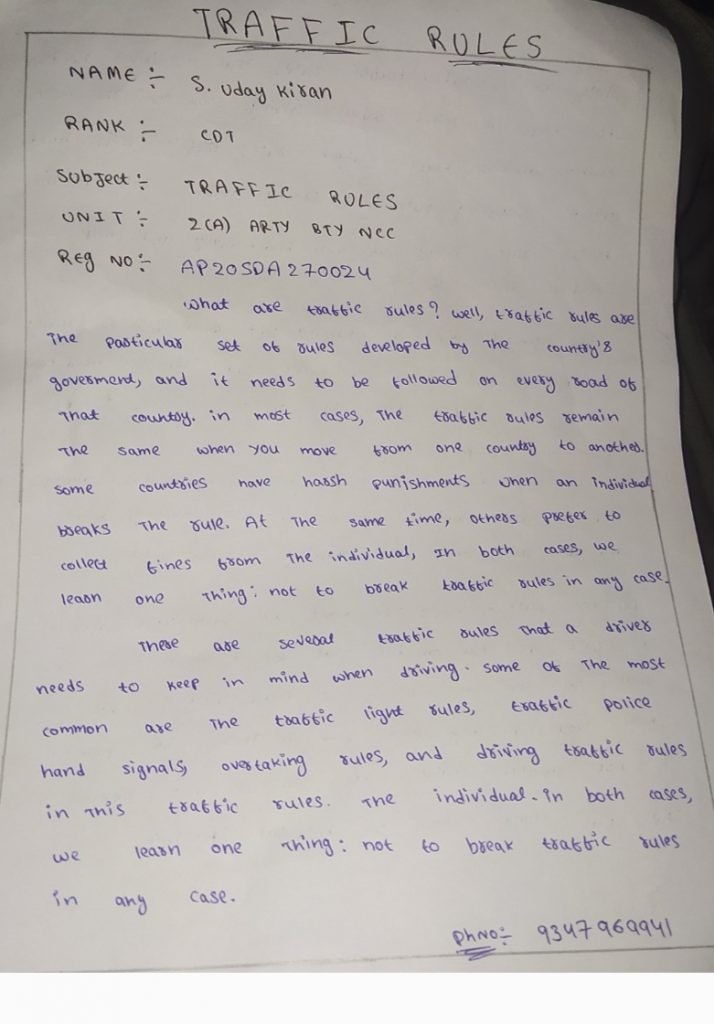 TRAFFIC RULES
NAME :- S. Uday Kiran
RANK :- CDT
Subject :- TRAFFIC RULES
UNIT :- 2(A) ARTY BTY NCC
Reg NO :- AP20SDA270024
What are traffic rules? well, traffic rules are
The particular set of rules developed by The country's
goverment, and it needs to be followed on every road of
That country. in most cases, The traffic rules remain
The same when you move from one country to another.
some countries have harsh punishments when an individual
breaks The rule. At The same time, others prefer to
collect fines from The individual, In both cases, we
learn one Thing: not to break traffic rules in any case.
There are several traffic rules That a driver
needs to keep in mind when driving. some of The most
common are The traffic light rules, traffic police
hand signals, overtaking rules, and driving traffic rules
in This traffic rules. The individual. In both cases,
we learn one Thing: not to break traffic rules
in any case.
PhNO:- 9347969941